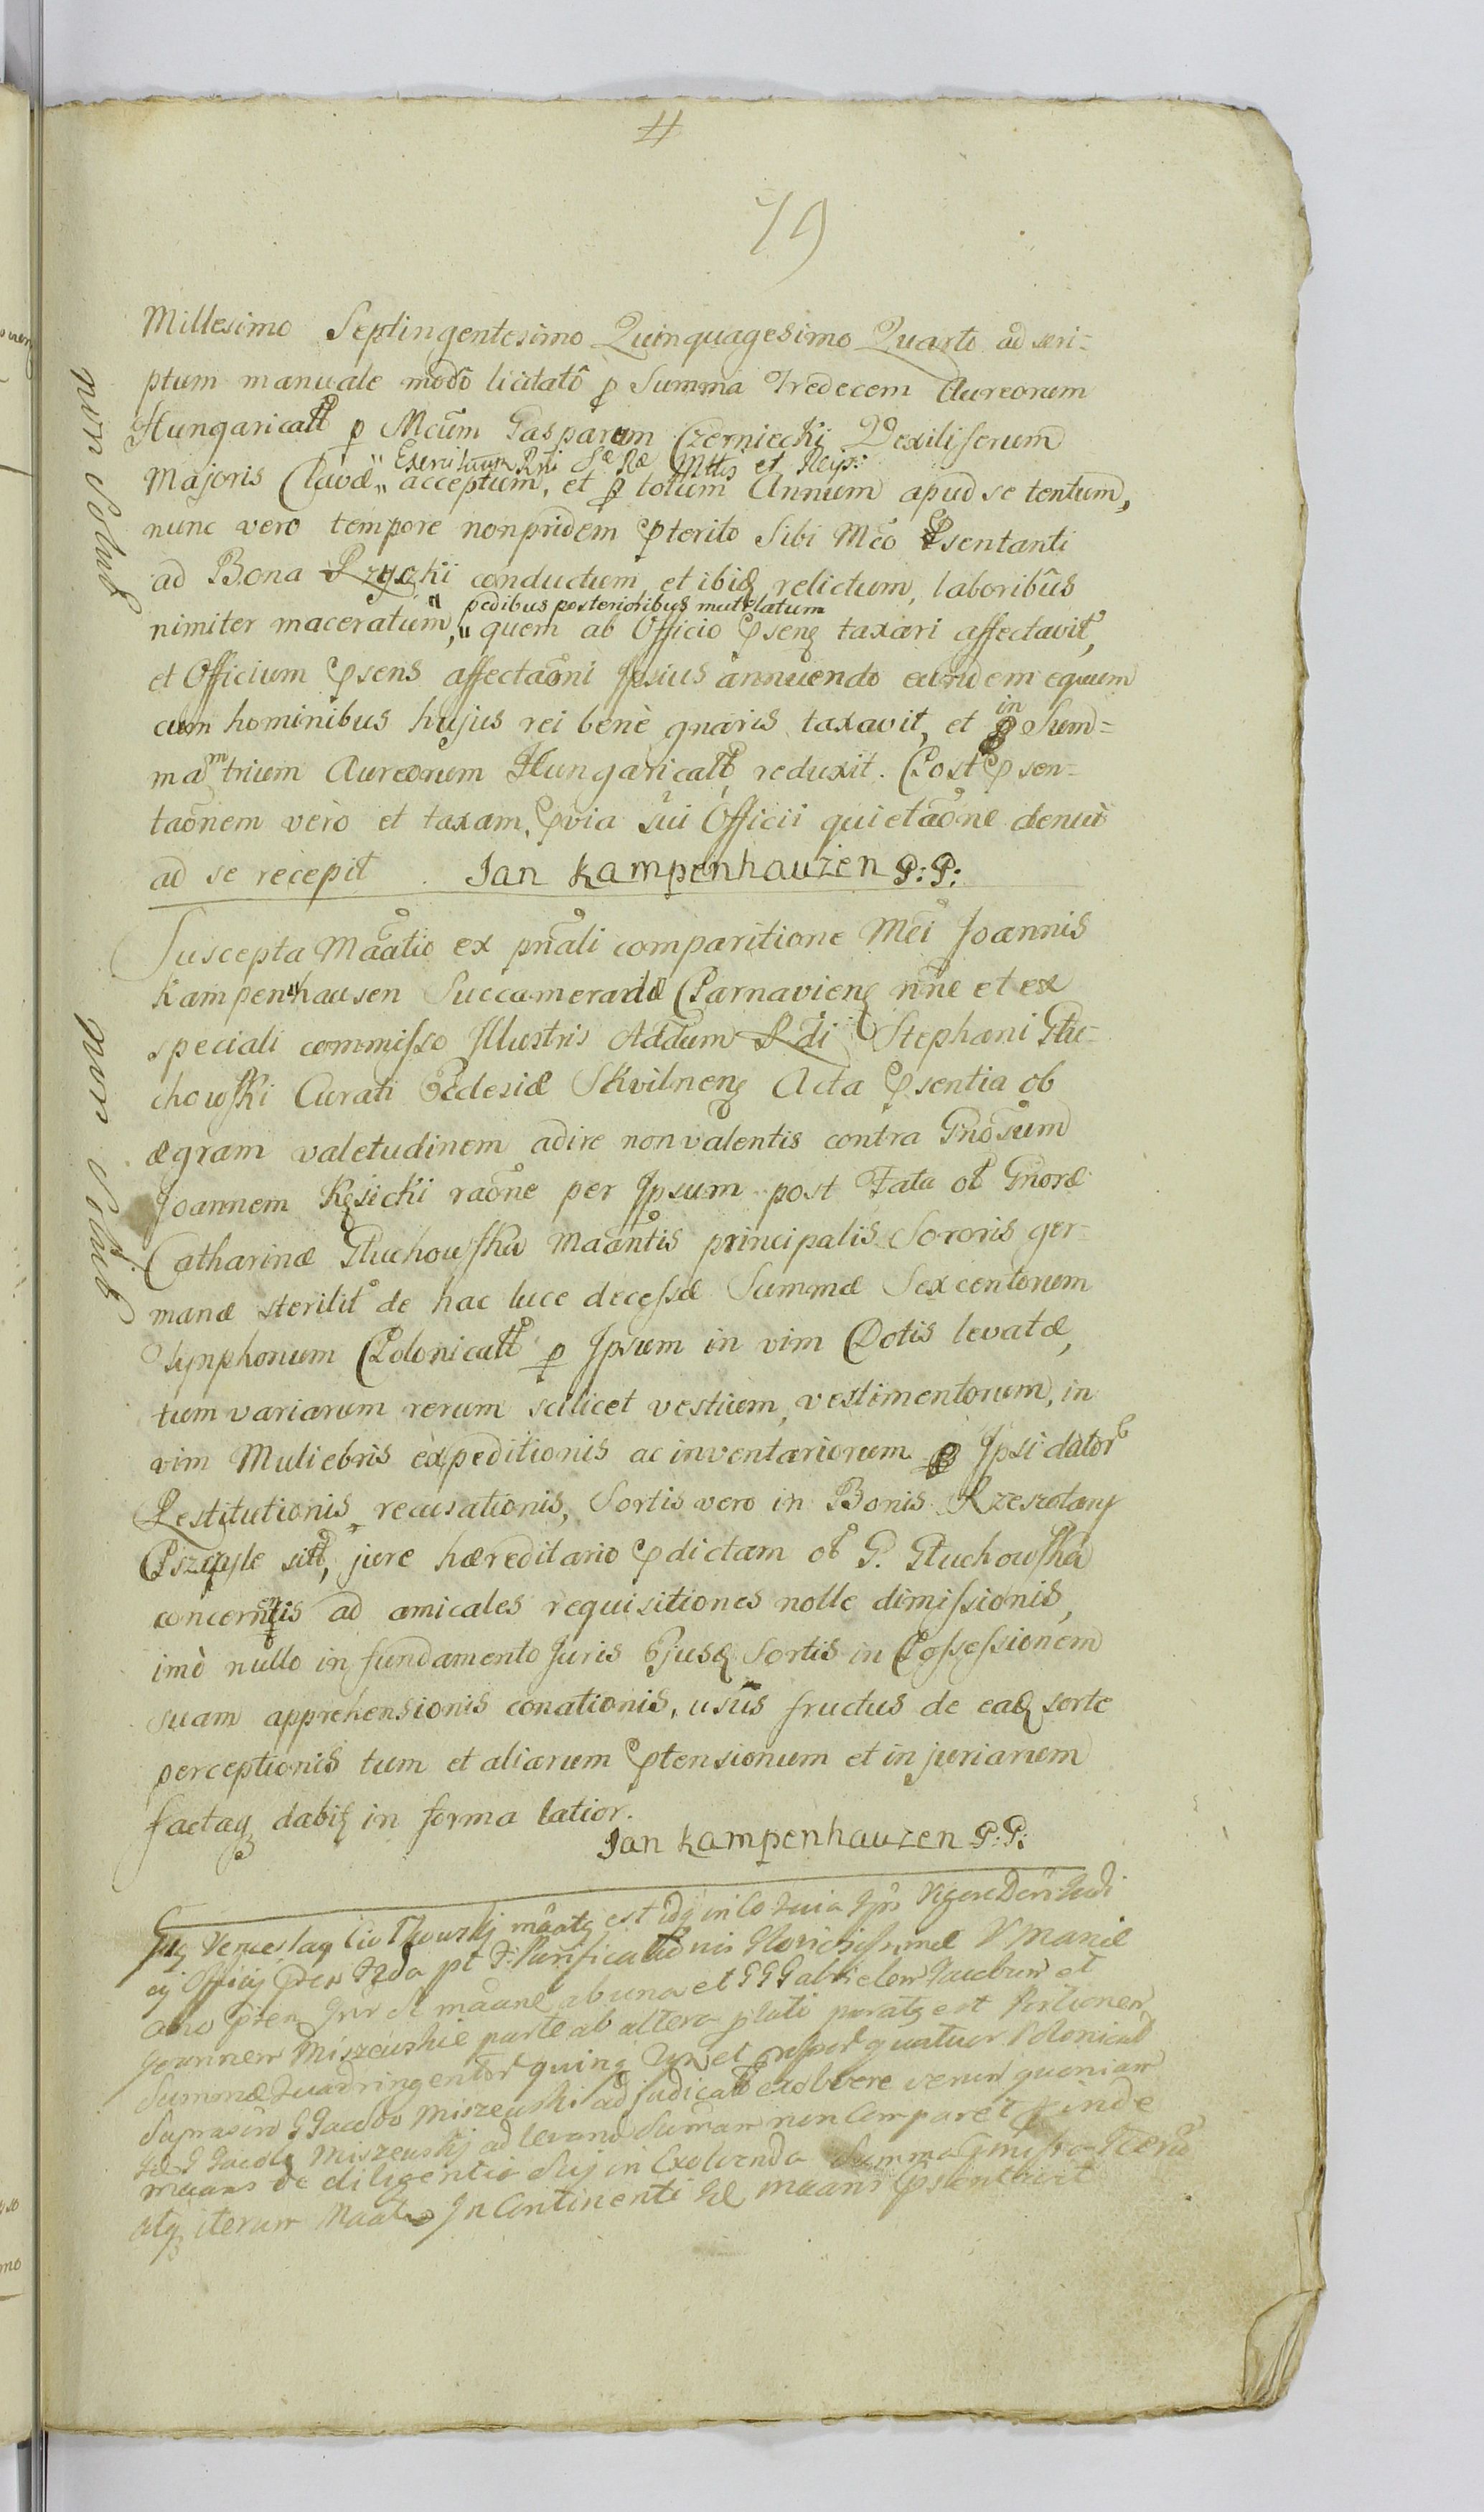 #
79
Millesimo Septingentesimo Quinquagesimo Quarto ad scri=
ptum manuale modô licitatô p Summa Tredecem Aureorum
Hungaricall p Mcum Gasparum Czerniecki Vexiliferum
Exercituum Rni Mttis et Reip:
Majoris Clavæ " acceptum, et p totum Annum apud se tentum,
nunc vero tempore nonpridem pterito Sibi Mco Psentanti
ad Bona Rzyczki conductum et ibid relictum, laboribus
pedibus posterioribus mutilatum
nimiter maceratum, " quem ab Officio psenz taxari affectavit,
et Officium psens affectaoni Ipsius annuendo eundem equum
cum hominibus hujus rei benè gnaris taxavit, et in Sum=
mam trium Aureorum Hungaricall reduxit. Post psen=
taonem verò et taxam, pvia sui Officii quietaone denuò
ad se recepit. Jan Kampenhauzen P: P:
non Solut
Suscepta Maatio ex pnali comparitione Mci Joannis
Kampenhausen Succamerarii Parnavienz nne et ex
speciali commisso Illustris Addum Rdi Stephani Głu=
chowski Curati Ecclesiæ Skvilnenz Acta psentia ob
ægram valetudinem adire non valentis contra Gnosum
Joannem Kęsicki raone per Ipsum post Fata ol Gnoræ
Catharinæ Głuchowska Maantis principalis Sororis ger=
manæ sterilit de hac luce decessæ Summæ Sexcentorum
Tynphonum Polonicall p Ipsum in vim Dotis levatæ,
tum variarum rerum scilicet vestium, vestimentorum, in
vim Muliebris expeditionis ac inventariorum Ipsi dator
Restitutionis recusationis, Sortis vero in Bonis Rzeszotary
Pszczele sitt, jure hæreditario pdictam ol G. Głuchowska
concernentis ad amicales requisitiones nolle dimissionis,
imò nullo in fundamento Juris Ejusd Sortis in Possessionem
suam apprehensionis conationis, usus fructus de ead sorte
perceptionis tum et aliarum ptensionum et injuriarum
factaq dabit in forma latior.
Jan Kampenhauzen P: P:
non Solut
est
Offici pt F: Purificationis Gloriosissimæ V Mariæ
ab una et GG Gabrielem Jacobum et
Joannem Miszewskie parte ab altera est Portionem
Summæ Quadringentor quinq et quatuor Polonicall
G Jacobo Miszewski adjudicat exolvere verum quoniam
G Jacob Miszewski ad levand Summam non Comparet inde
maans de diligentia Sui in Exolvenda Summa
atq iterum Maat In Continenti maans psentavit